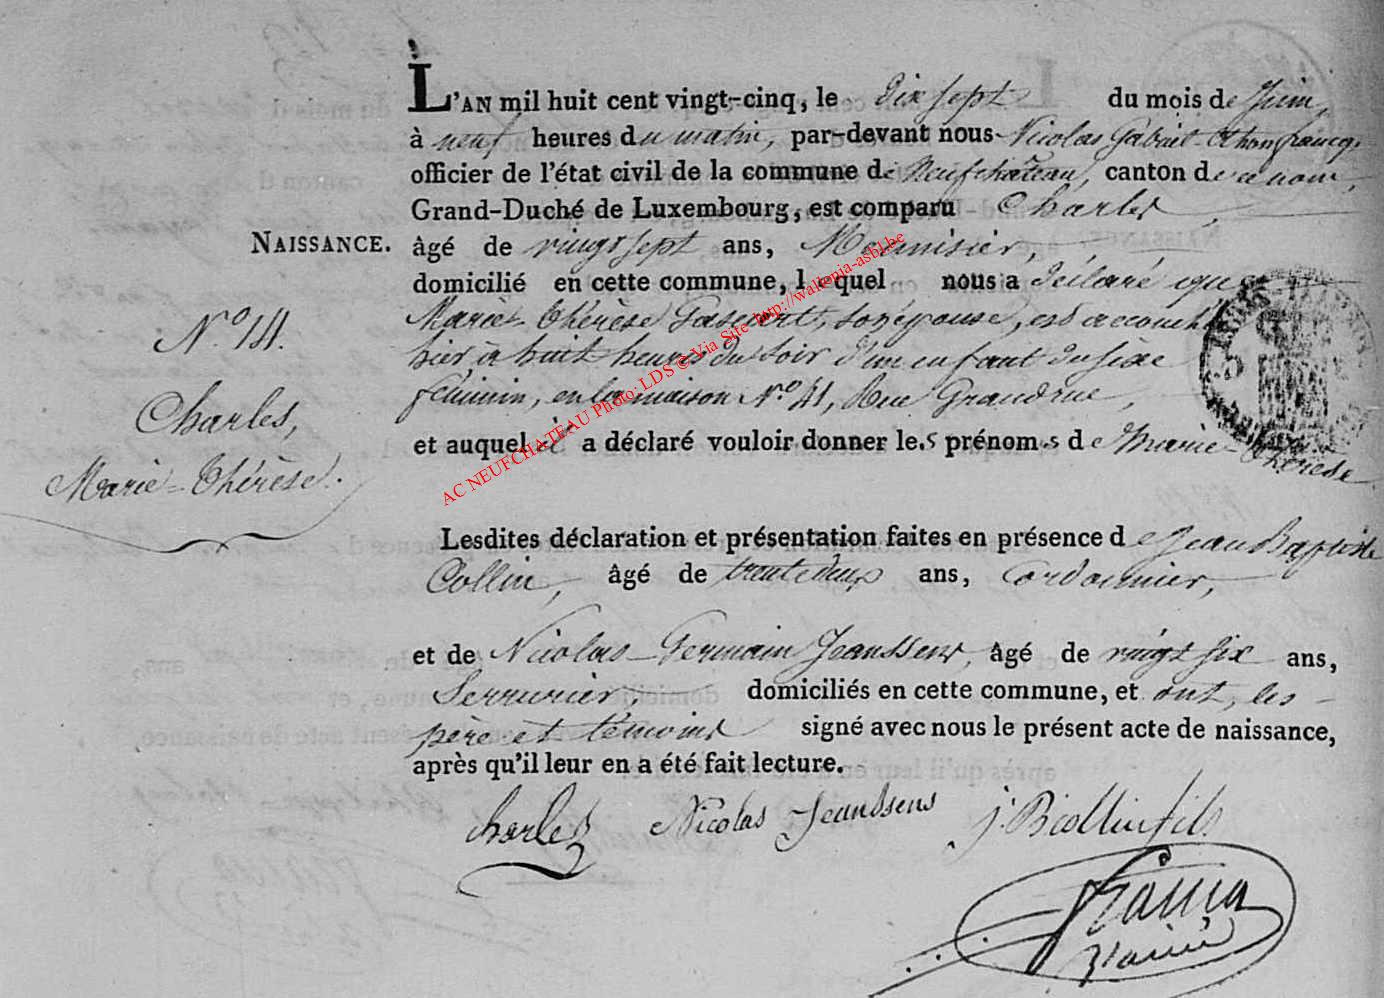 L'AN mil huit cent vingt-cinq, le dix sept du mois de Juin,
à neuf heures du matin, par-devant nous Nicolas Gabriel
officier de l'état civil de la commune de Neufchâteau, canton de ce nom,
Grand-Duché de Luxembourg, est comparu Charles,
NAISSANCE.
âgé de vingt sept ans, Menuisier,
domicilié en cette commune, lequel nous a déclaré que
Marie Thérèse son épouse, est accouchée
hier à huit heures du soir d'un enfant du sexe
féminin, en la maison N.º 41, Rue Grandrue,
et auquel il a déclaré vouloir donner les prénoms de Marie-Thérèse
N.º 14.
Charles,
Marie-Thérèse.
Lesdites déclaration et présentation faites en présence de Jean Baptiste
Collin, âgé de trente deux ans, Cordonnier,
et de Nicolas Germain Jeanssens, âgé de vingt six ans,
Serrurier, domiciliés en cette commune, et ont, les
père et témoins signé avec nous le présent acte de naissance,
après qu'il leur en a été fait lecture.
Charles Nicolas Jeanssens J. B Collin fils
AC NEUFCHATEAU Photo: LDS © Via Site http://wallonia-asbl.be